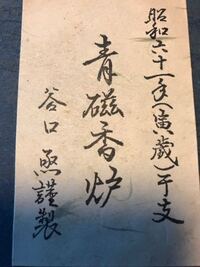 昭和六十一年(寅歳)干支
青磁香炉
谷口 煕謹製